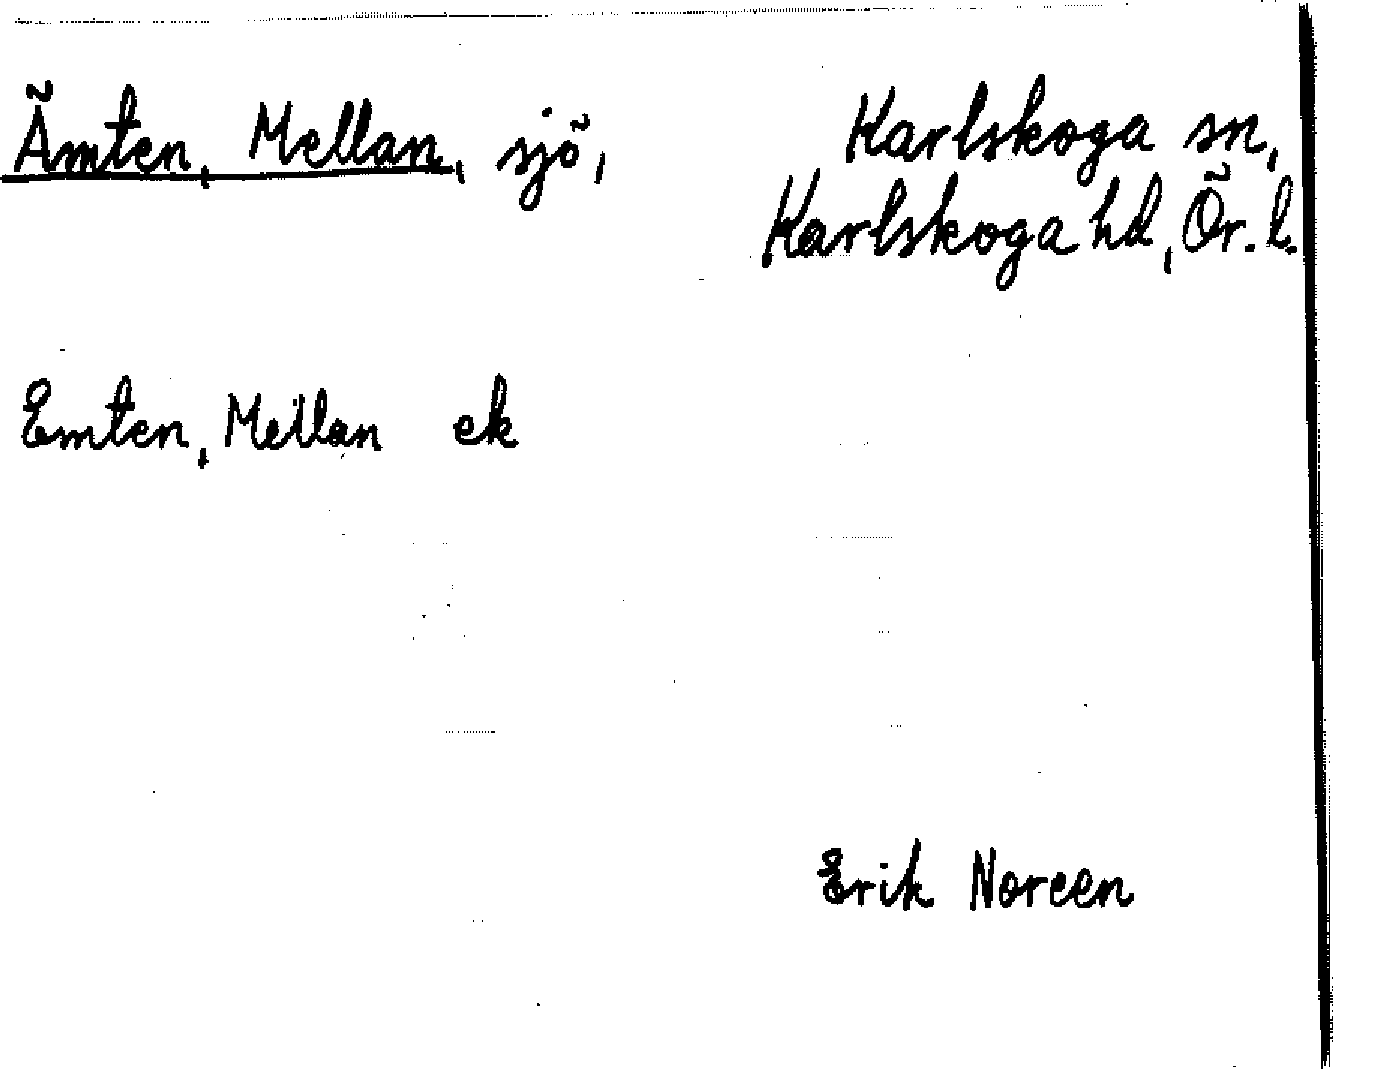 Ämten, Mellan, sjö,
Karlskoga sn,
Karlskoga hd, Ör. l.
Emten, Mellan ek
Erik Noreen